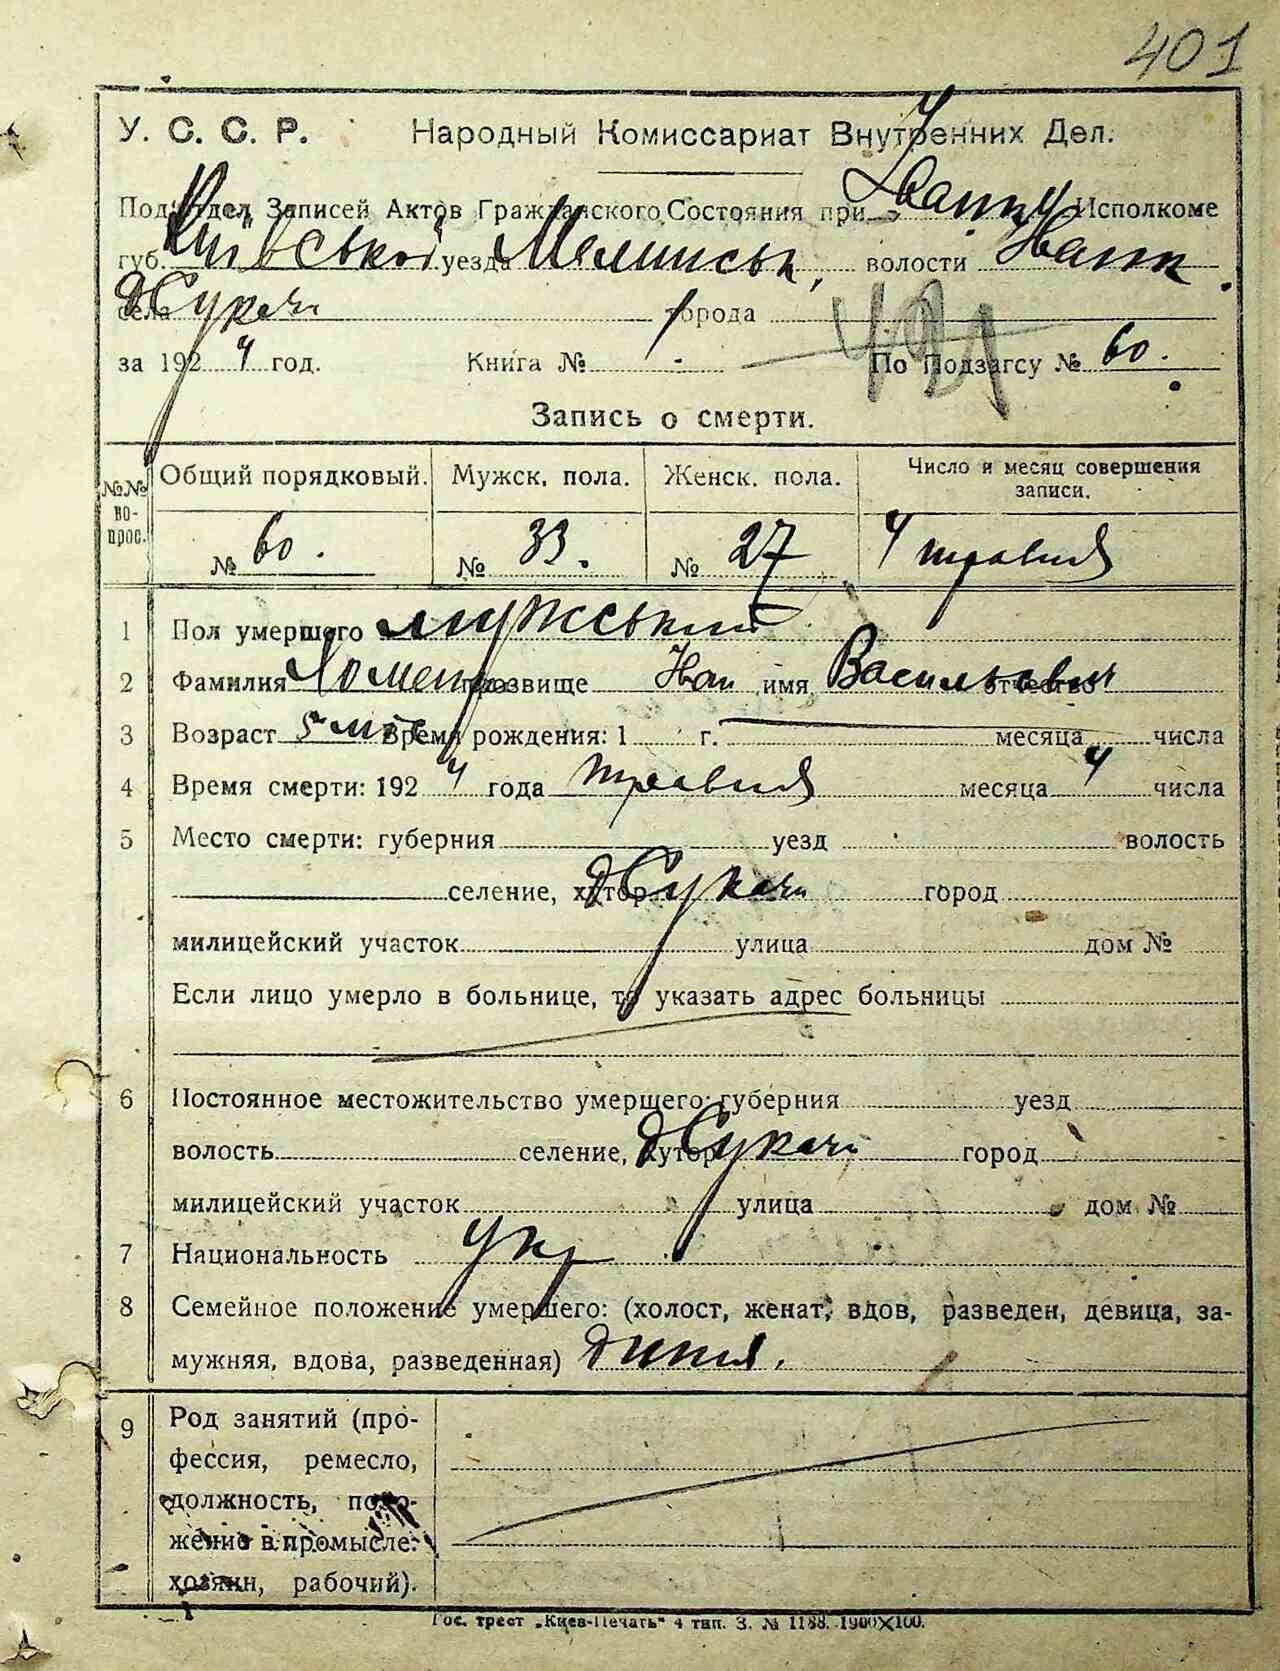 401
У. С. С. Р. Народный Комиссариат Внутренних Дел.
Подотдел Записей Актов Гражданского Состояния при Исполкоме
губ. Київської уезда волости
села д Сукачі города
за 1924 год. Книга № - По Подзагсу № 60.
Запись о смерти.
№№ вопрос. Общий порядковый. Мужск. пола. Женск. пола. Число и месяц совершения записи.
№ 60. № 33. № 27 4 травня
1 Пол умершего мужський
2 Фамилия прозвище Іван имя Васильович отчество
3 Возраст 5 міс Время рождения: 1 г. месяца числа
4 Время смерти: 1924 года травня месяца 4 числа
5 Место смерти: губерния уезд волость
селение, хутор д Сукачі город
милицейский участок улица дом №
Если лицо умерло в больнице, то указать адрес больницы
6 Постоянное местожительство умершего: губерния уезд
волость селение, хутор д Сукачі город
милицейский участок улица дом №
7 Национальность укр
8 Семейное положение умершего: (холост, женат, вдов, разведен, девица, за-
мужняя, вдова, разведенная) дитя.
9 Род занятий (про-
фессия, ремесло,
должность, поло-
жение в промысле:
хозяин, рабочий).
Гос. трест „Киев-Печать" 4 тип. З. № 1188. 1900×100.